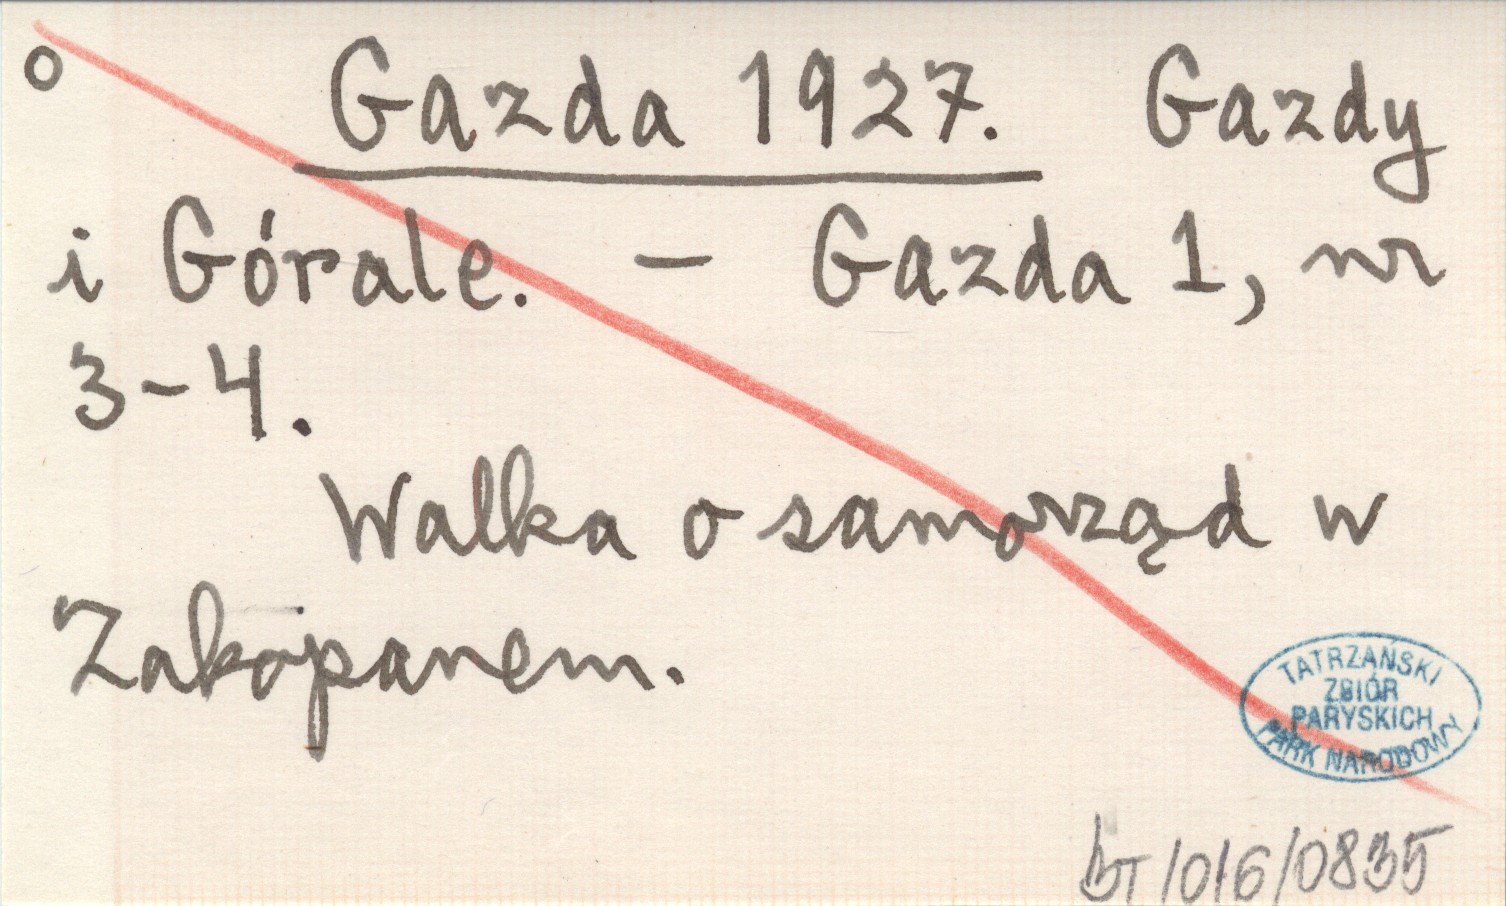 o Gazda 1927. Gazdy
i Górale. – Gazda 1, nr
3-4.
Walka o samorząd w
Zakopanem.
TATRZAŃSKI
ZBIÓR
PARYSKICH
PARK NARODOWY
bT/016/0835